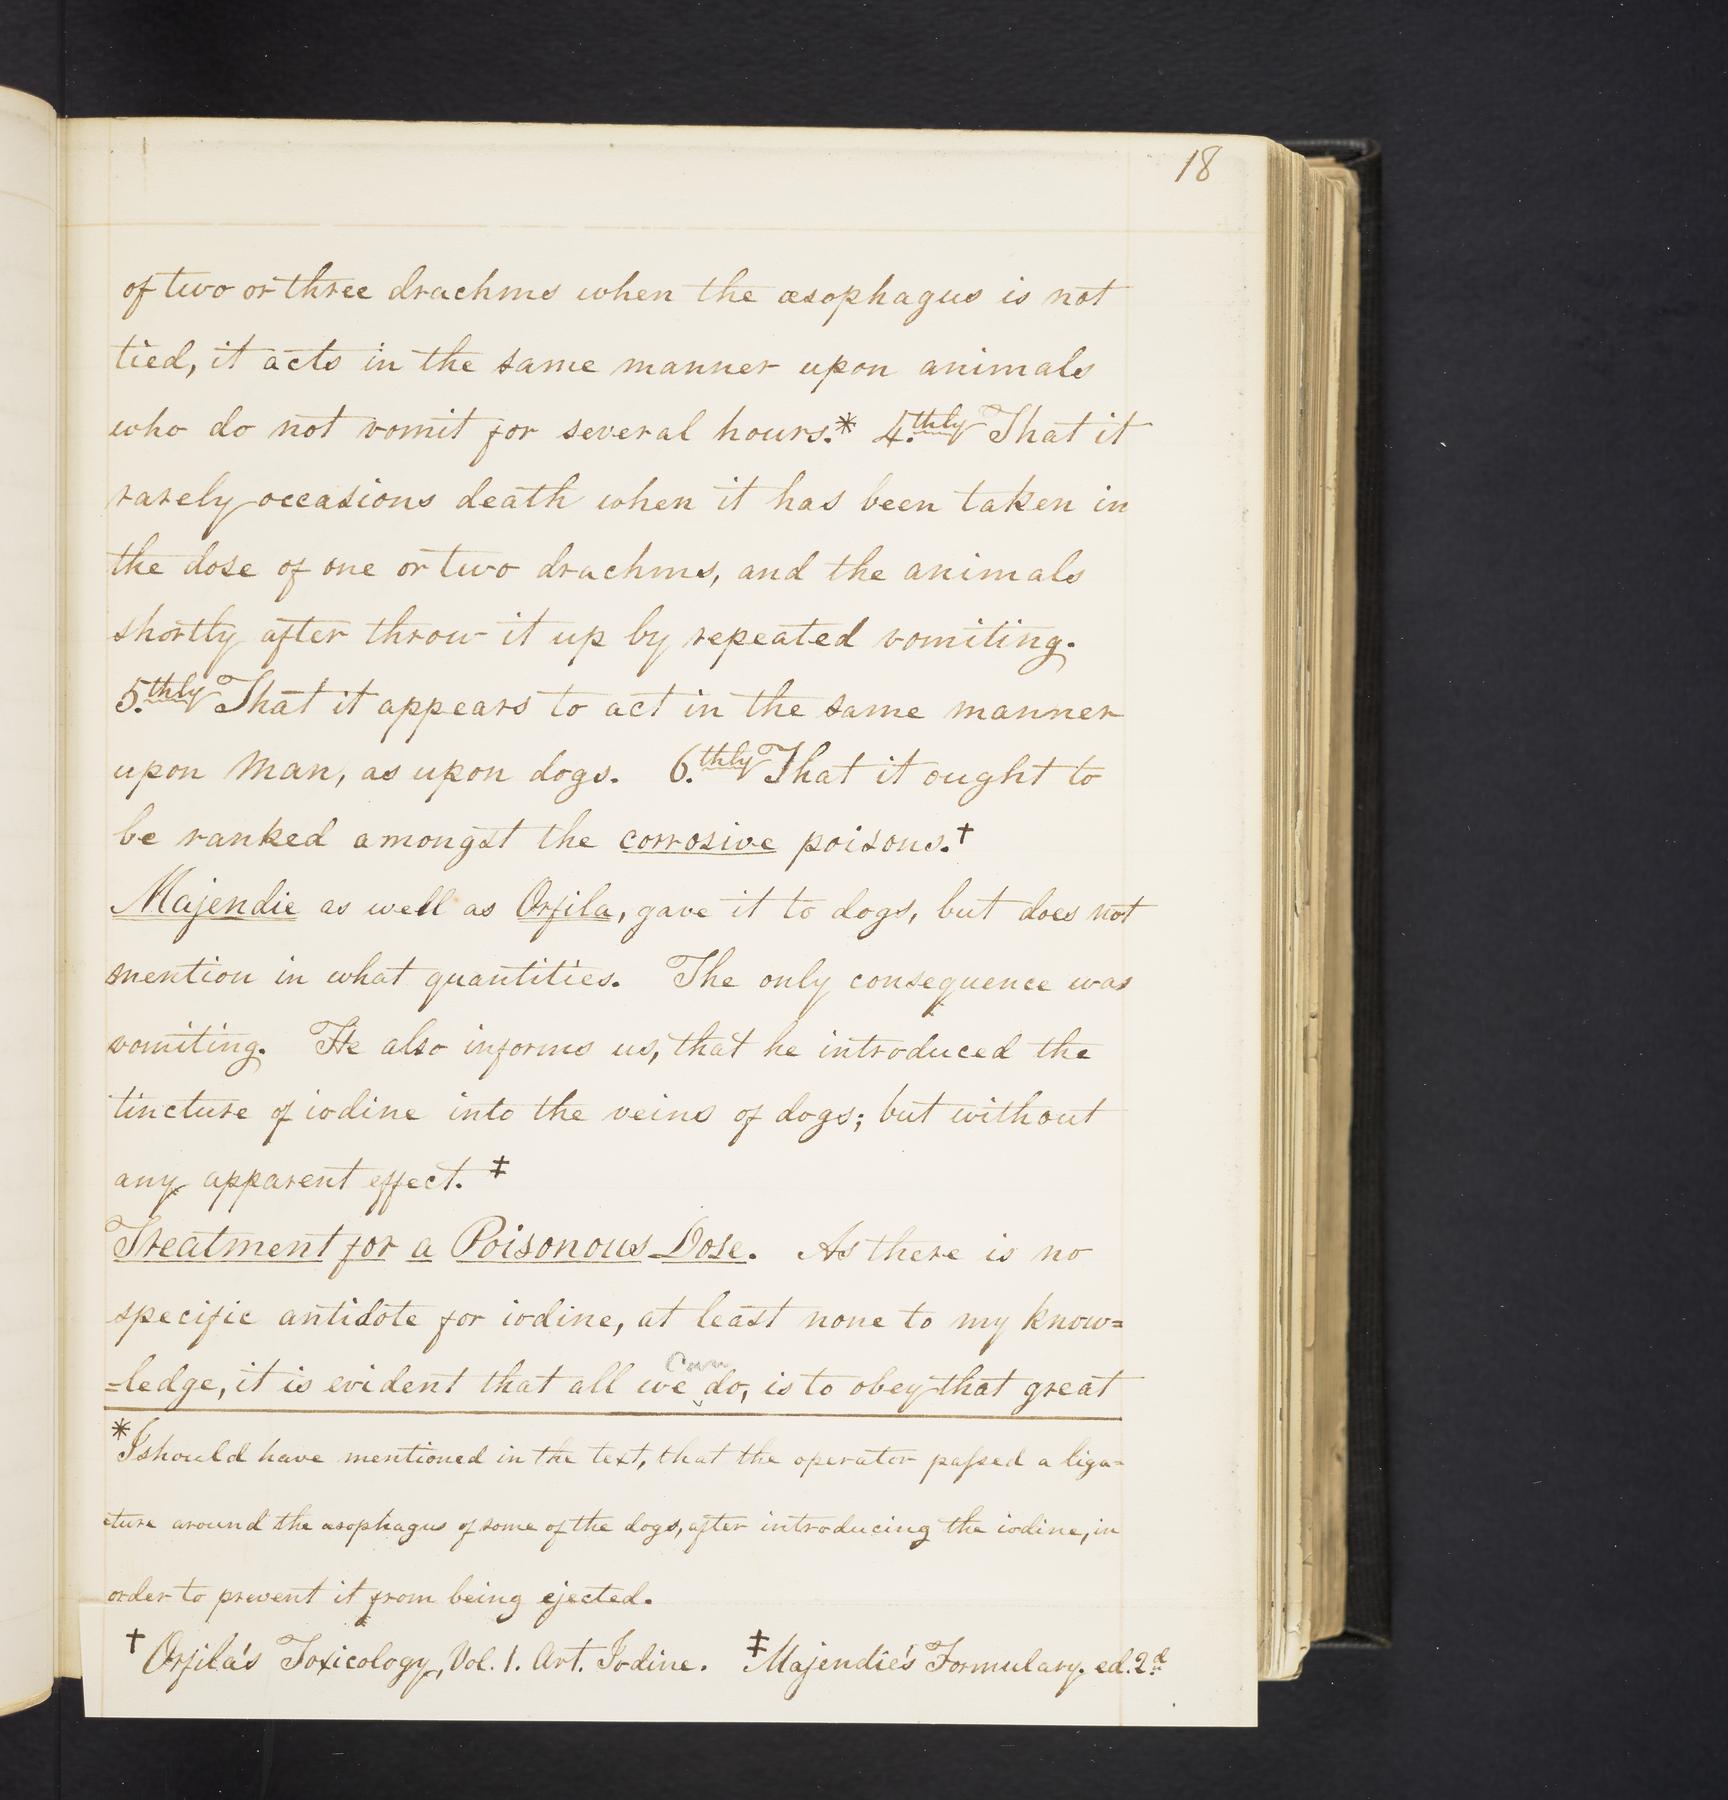 18
of two or three drachms when the œsophagus is not
tied, it acts in the same manner upon animals
who do not vomit for several hours.* 4.thly That it
rarely occasions death when it has been taken in
the dose of one or two drachms, and the animals
shortly after throw it up by repeated vomiting.
5.thly That it appears to act in the same manner
upon Man, as upon dogs. 6.thly That it ought to
be ranked amongst the corrosive poisons.†
Majendie as well as Orfila, gave it to dogs, but does not
mention in what quantities. The only consequence was
vomiting. He also informs us, that he introduced the
tincture of iodine into the veins of dogs; but without
any apparent effect. ‡
Treatment for a Poisonous Dose. As there is no
specific antidote for iodine, at least none to my know=
can
=ledge, it is evident that all we ‸ do, is to obey that great
*I should have mentioned in the text, that the operator paſsed a liga=
cture around the œsophagus of some of the dogs, after introducing the iodine, in
order to prevent it from being ejected.
† Orfila's Toxicology, Vol. 1. Art. Iodine. ‡ Majendie's Formulary. ed. 2d